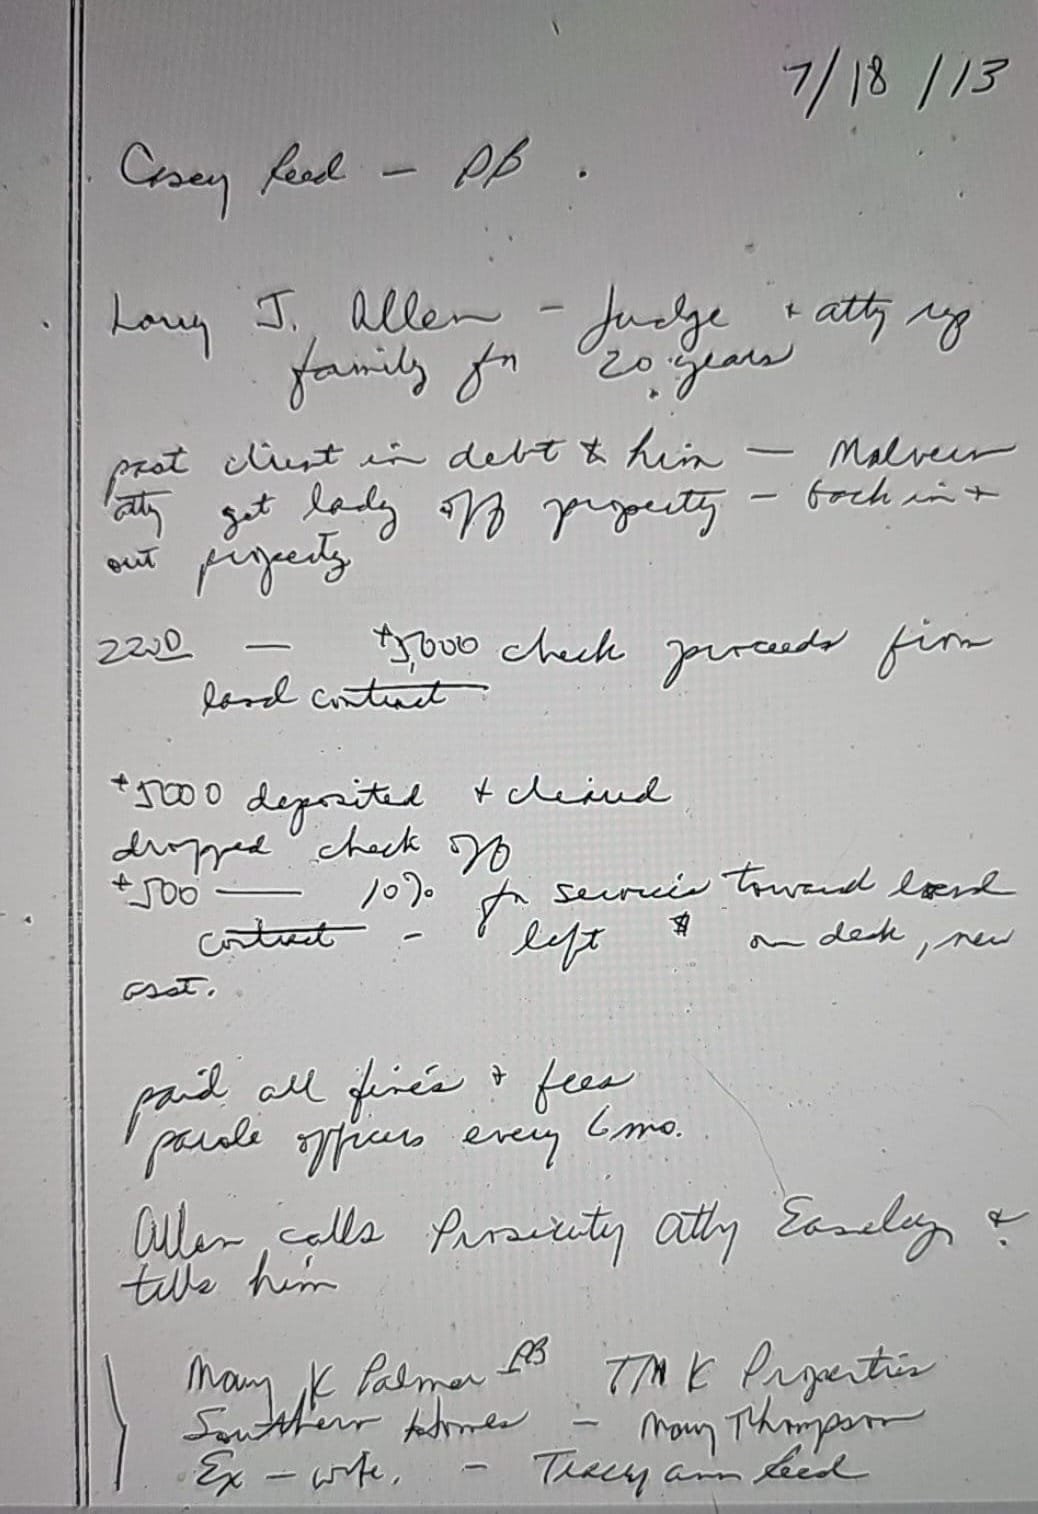 7/18/13
Casey Reed - PB.
Larry J. Allen - Judge + atty rep
family for 20 years
past client in debt to him - Malvern
atty got lady off property - back in +
out property
22nd - $5,000 check proceeds from
land contract
$5000 deposited + cleared
dropped check off
$500 - 10% for services toward land
contract - left $ on desk, new
asst.
paid all fines + fees
parole officers every 6 mo.
Allen calls Prosecuty Atty Easley &
tells him
Mary K Palmer PB TMK Properties
Southern Homes - Mary Thompson
Ex-wife, - Tracey Ann Reed